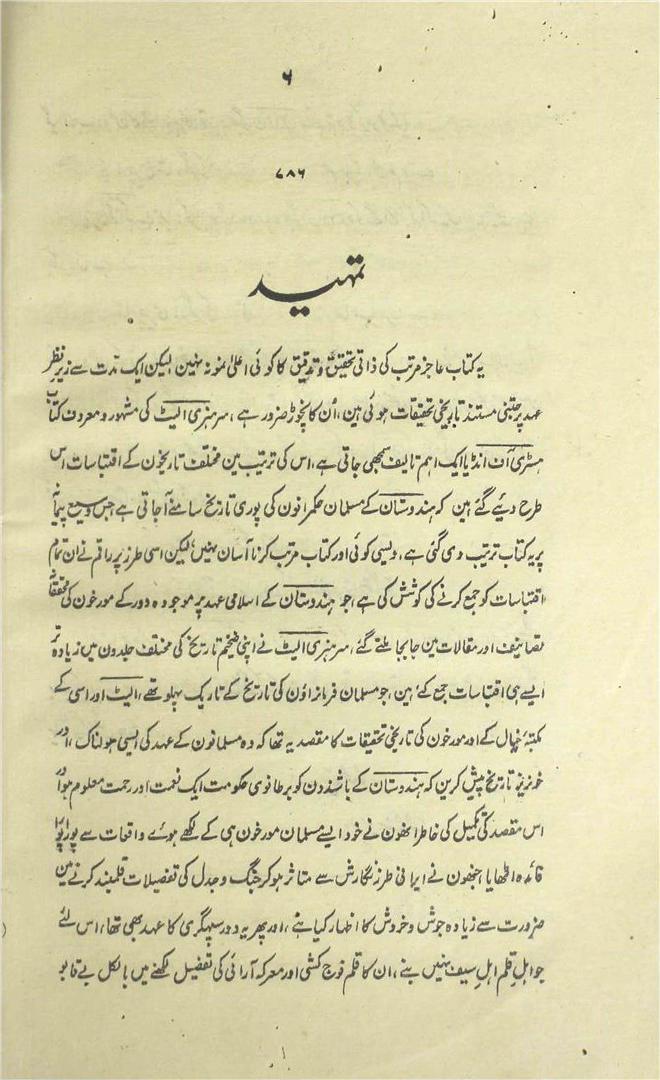 ۶
۷۸۶
تمہید
یہ کتاب عاجز مرتب کی ذاتی تحقیق و تدقیق کا کوئی اعلیٰ نمونہ نہین لیکن ایک مدت سے زیر نظر
عہد پر جتنی مستند تاریخی تحقیقات ہوئی ہین، اُن کا نچوڑ ضرور ہے، سر ہنری الیٹ کی مشہور و معروف کتاب
ہسٹری آف انڈیا ایک اہم تالیف سمجھی جاتی ہے، اس کی ترتیب مین مختلف تاریخون کے اقتباسات اس
طرح دیئے گئے ہین کہ ہندوستان کے مسلمان حکمرانون کی پوری تاریخ سامنے آجاتی ہے جس وسیع پیمانے
پر یہ کتاب ترتیب دی گئی ہے، ویسی کوئی اور کتاب مرتب کرنا آسان نہین، لیکن اسی طرز پر راقم نے ان تمام
اقتباسات کو جمع کرنے کی کوشش کی ہے، جو ہندوستان کے اسلامی عہد پر موجودہ دور کے مورخون کی محققانہ
تصانیف اور مقالات مین جابجا ملتے گئے، سر ہنری الیٹ نے اپنی ضخیم تاریخ کی مختلف جلدون میں زیادہ تر
ایسے ہی اقتباسات جمع کئے ہین، جو مسلمان فرمانرواؤن کی تاریخ کے تاریک پہلو تھے، الیٹ اور اسی کے
مکتبۂ خیال کے اور مورخون کی تاریخی تحقیقات کا مقصد یہ تھا کہ وہ مسلمانون کے عہد کی ایسی ہولناک، اور
خونریز تاریخ پیش کرین کہ ہندوستان کے باشندون کو برطانوی حکومت ایک نعمت اور رحمت معلوم ہو اور
اس مقصد کی تکمیل کی خاطر انھون نے خود ایسے مسلمان مورخون ہی کے لکھے ہوئے واقعات سے پورا پورا
فائدہ اٹھایا، جنھون نے ایرانی طرز نگارش سے متاثر ہو کر جنگ و جدل کی تفصیلات قلمبند کرنے مین
ضرورت سے زیادہ جوش و خروش کا اظہار کیا ہے، اور پھر یہ دور سپہگری کا عہد بھی تھا، اس لئے
جو اہلِ قلم اہلِ سیف نہیں بنے، ان کا قلم فوج کشی اور معرکہ آرائی کی تفصیل لکھنے میں بالکل بے قابو